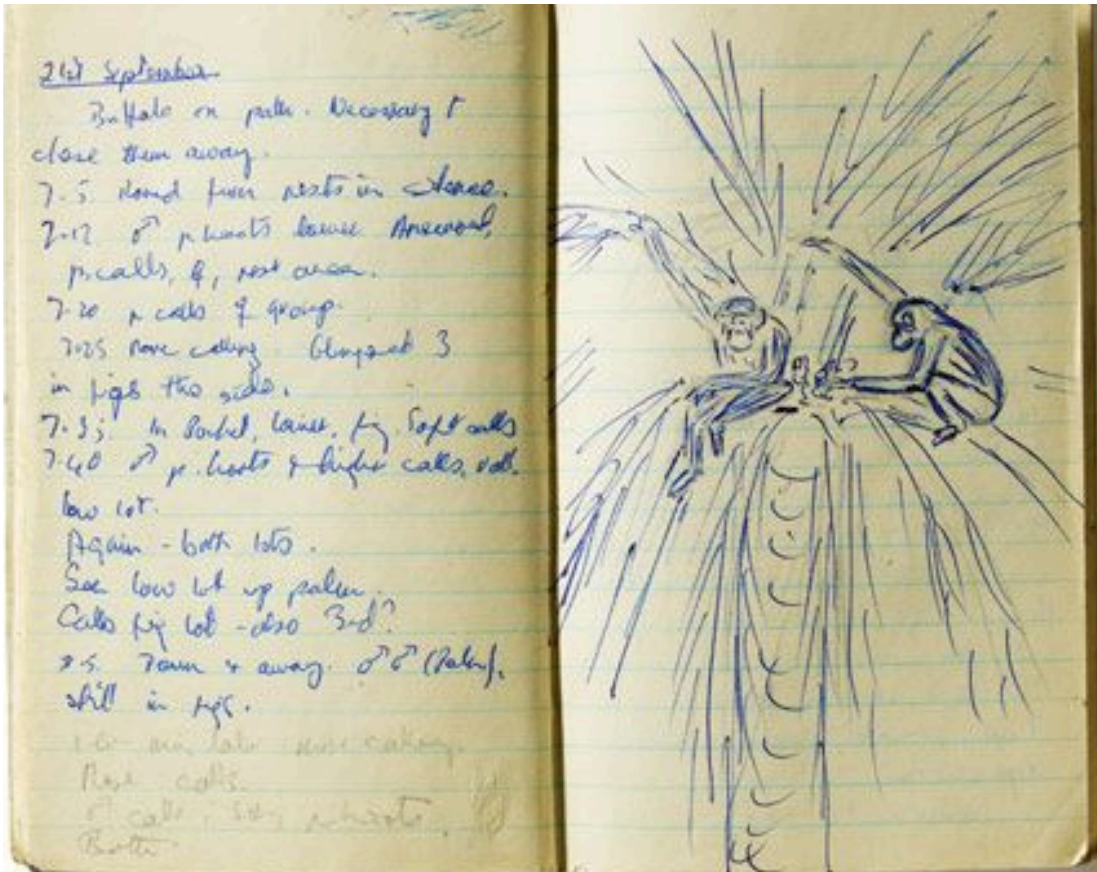 21st September
Buffalo on path. Necessary t
chase them away.
7.5 Moved from nests in silence.
7.17 ♂ p. hoots lower
p. calls, &, nest area.
7.20 p calls of group.
7.25 more calling Glimpsed 3
in figs this side.
7.35. In, lower, fig. Soft calls
7.40 ♂ p. hoots & higher calls,
low lot.
Again - both lots.
See low lot up palm.
Calls fig lot - also 3rd?
Down & away. ♂♂ (Palm),
still in figs.
more calling.
More calls.
♂ calls p. hoots.
Both